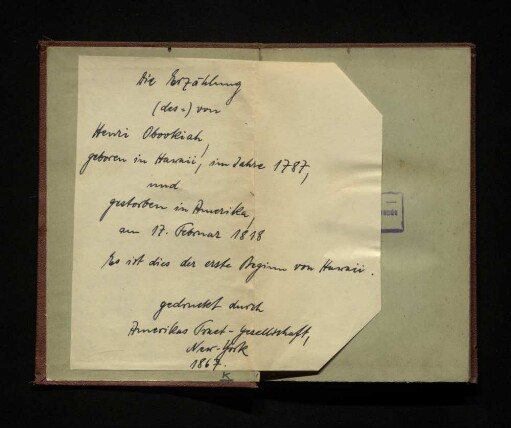 Die Erzählung
(des-) von
Henri Obookiah,
geboren in Hawaii, im Jahre 1787,
und
gestorben in Amerika,
am 17. Februar 1818
Es ist dies der erste Beginn von Hawaii.
gedruckt durch
Amerikas Tract-Gesellschaft,
New-York
1867.
K